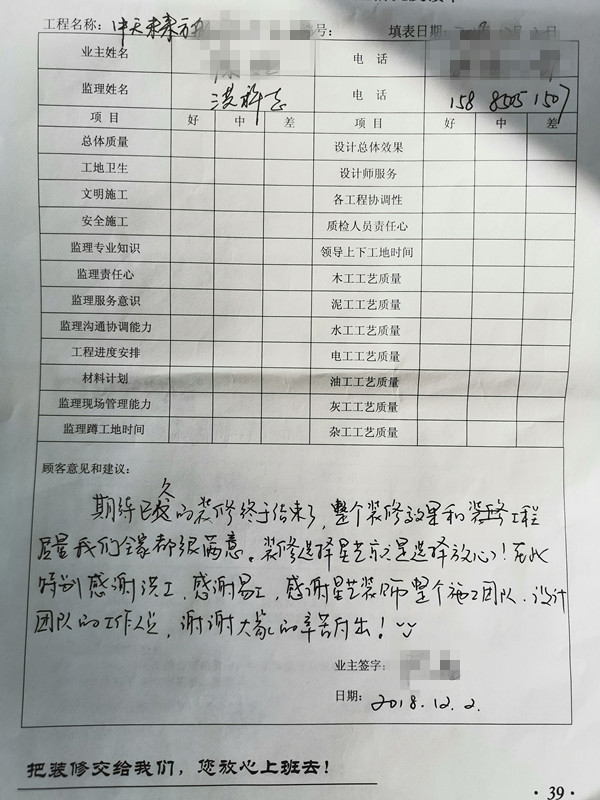 工程名称：中天未来方舟 号： 填表日期：
业主姓名 电 话
监理姓名 洪 电 话 158 8505 1507
项 目 好 中 差 项 目 好 中 差
总体质量 设计总体效果
工地卫生 设计师服务
文明施工 各工程协调性
安全施工 质检人员责任心
监理专业知识 领导上下工地时间
监理责任心 木工工艺质量
监理服务意识 泥工工艺质量
监理沟通协调能力 水工工艺质量
工程进度安排 电工工艺质量
材料计划 油工工艺质量
监理现场管理能力 灰工工艺质量
监理蹲工地时间 杂工工艺质量
顾客意见和建议：
期待已久的装修终于结束了，整个装修效果和装修工程
质量我们全家都很满意。装修选择星艺就是选择放心！在此
特别感谢洪工，感谢易工，感谢星艺装饰整个施工团队、设计
团队的工作人员，谢谢大家的辛苦付出！
业主签字：
日期：2018.12.2.
把装修交给我们，您放心上班去！
· 39 ·